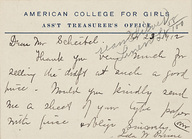 AMERICAN COLLEGE FOR GIRLS
ASST TREASURER'S OFFICE
Dear Mr Scheibel
Thank you very much for
selling the draft at such a good
price. Would you kindly send
me a sheet of your type paper
with price